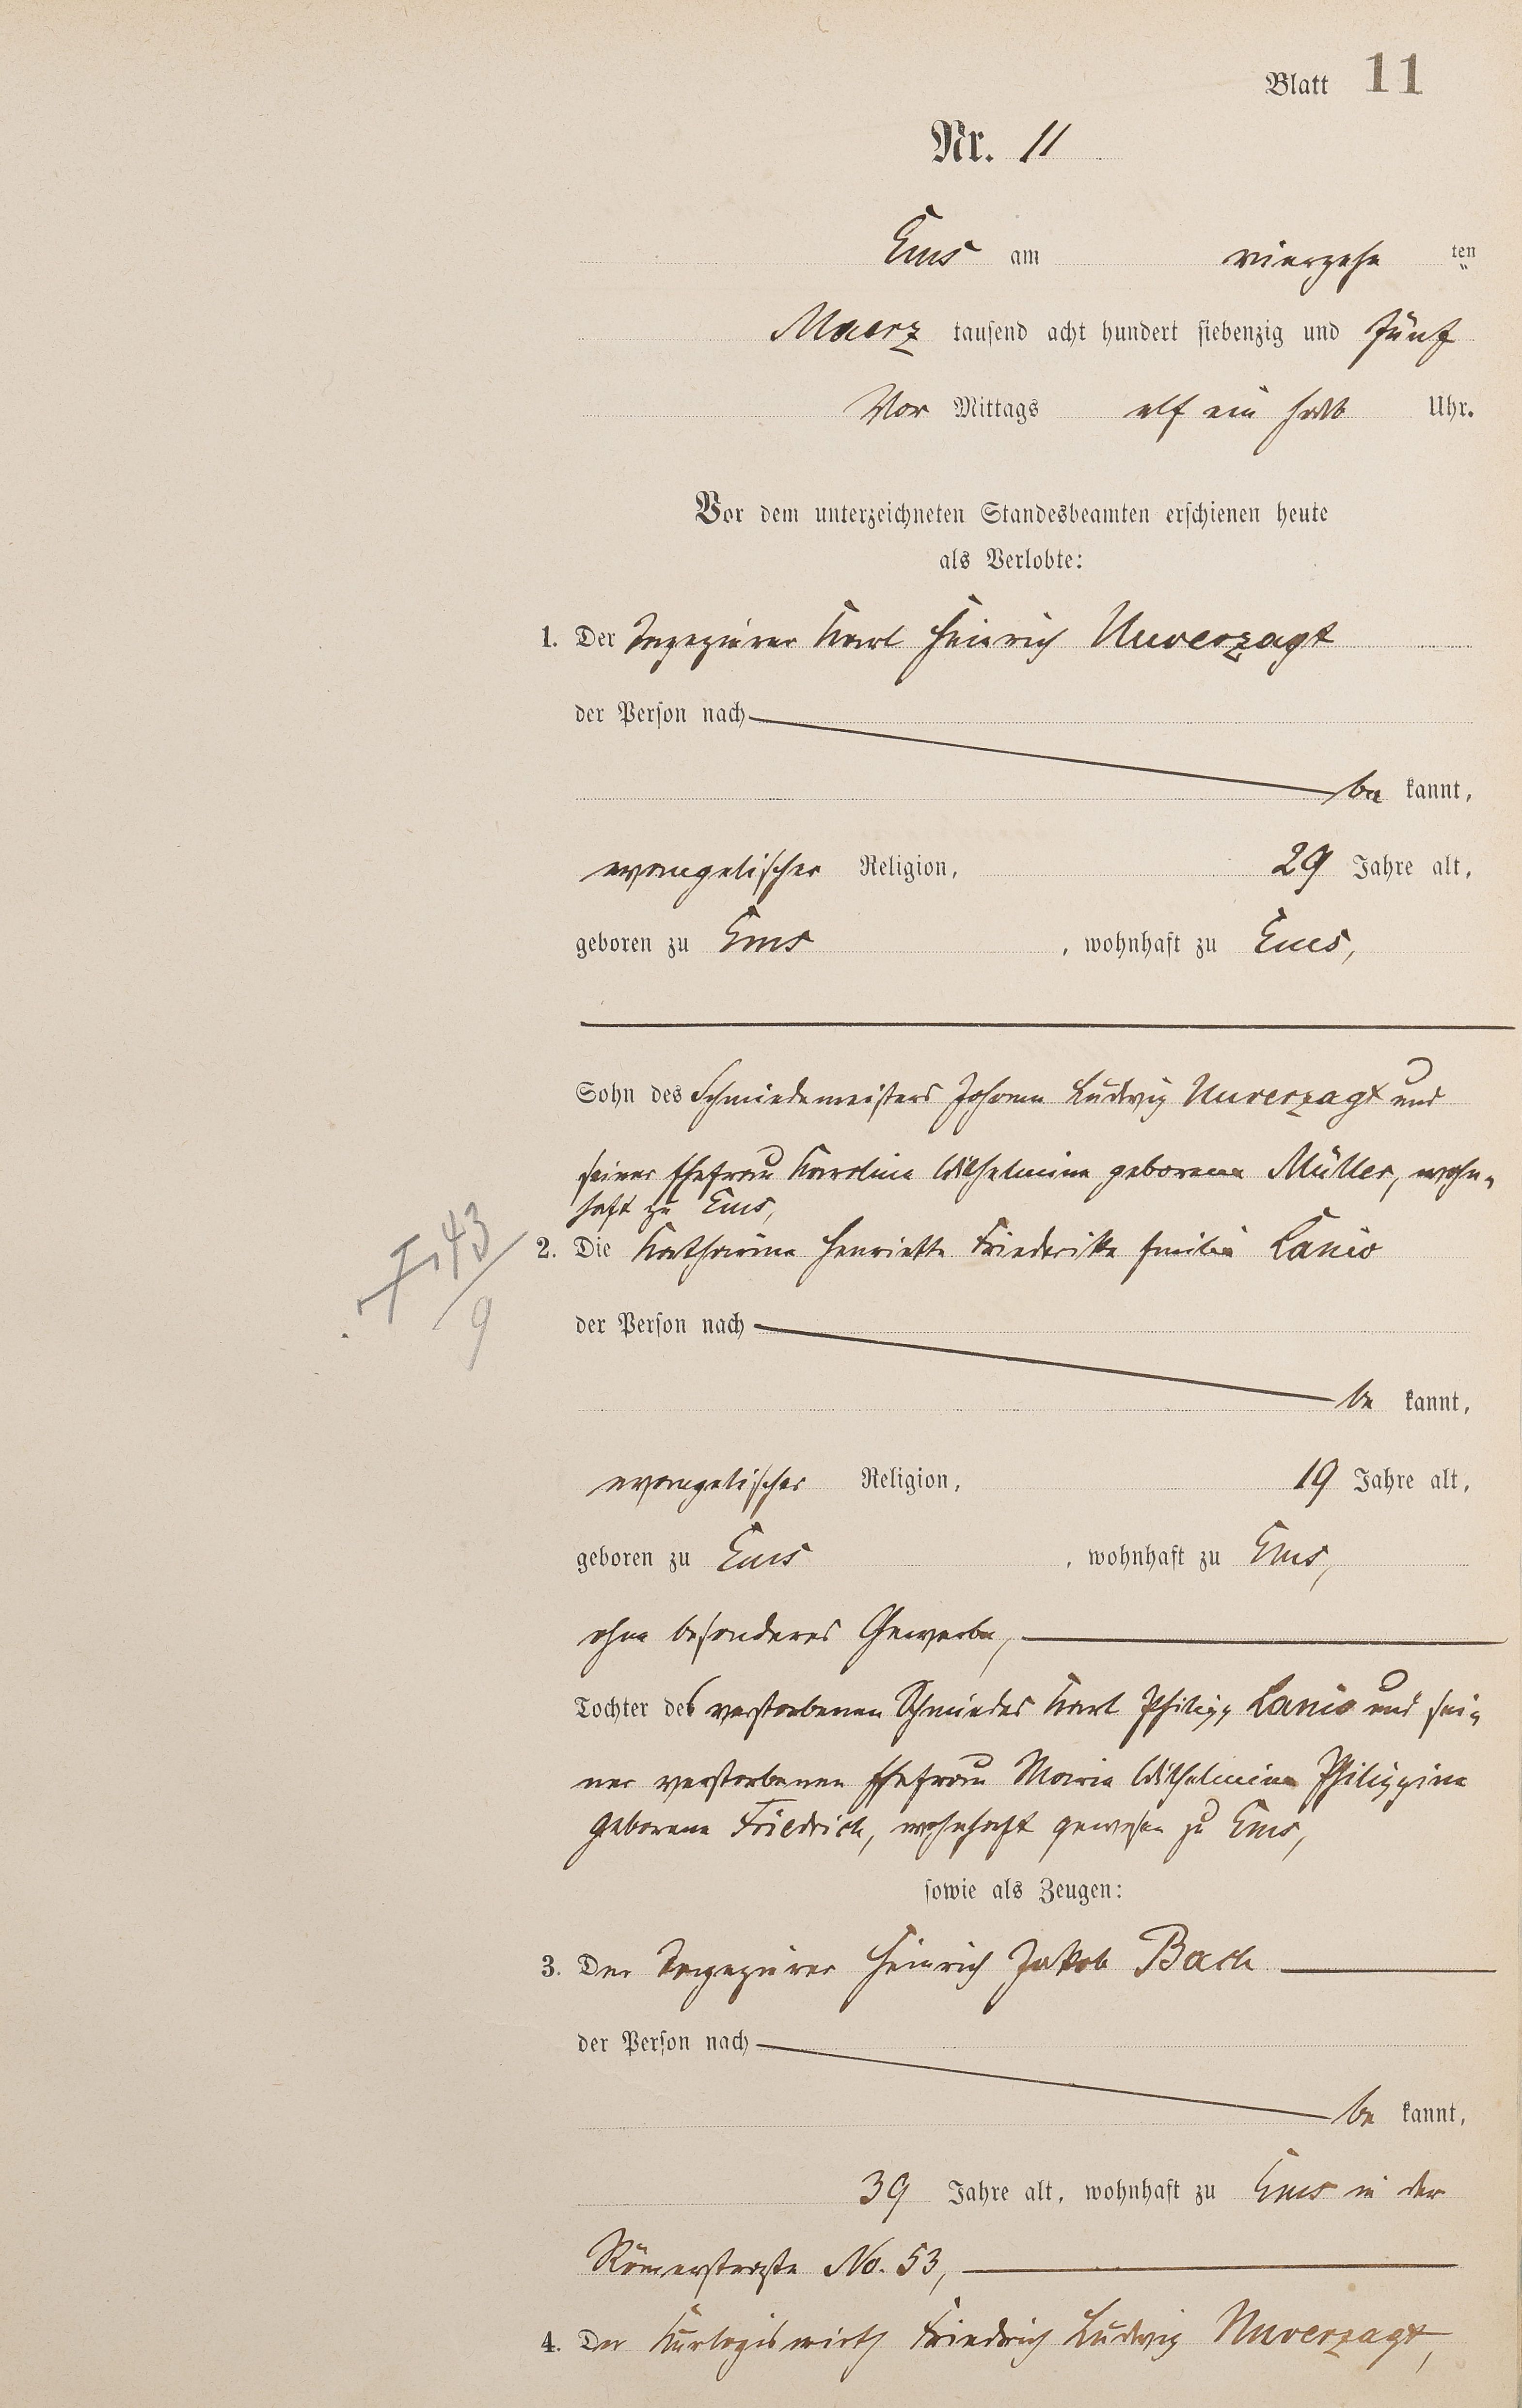 Blatt 11
Nr. 11
Ems am vierzehn ten
Maerz tausend acht hundert siebenzig und fünf
Vor Mittags elf ein halb Uhr.
Vor dem unterzeichneten Standesbeamten erschienen heute
als Verlobte:
1. Der Tapezirer Karl Heinrich Unverzagt
der Person nach
be kannt,
evangelischer Religion, 29 Jahre alt,
geboren zu Ems, wohnhaft zu Ems,
Sohn des Schmiedemeisters Johann Ludwig Unverzagt und
seiner Ehefrau Karoline Wilhelmine geborene Müller, wohn-
haft zu Ems,
43
2. Die Katharine Henriette Friederike Emilie Lanio
9
der Person nach
be kannt,
evangelischer Religion, 19 Jahre alt,
geboren zu Ems, wohnhaft zu Ems,
ohne besonderes Gewerbe,
Tochter des verstorbenen Schmiedes Karl Philipp Lanio und sei-
ner verstorbenen Ehefrau Maria Wilhelmine Philippine
geborene Friedrich, wohnhaft gewesen zu Ems,
sowie als Zeugen:
3. Der Tapezirer Heinrich Jakob Bach
der Person nach
be kannt,
39 Jahre alt, wohnhaft zu Ems in der
Römerstraße No. 53,
4. Der Kurlogiswirth Friedrich Ludwig Unverzagt,